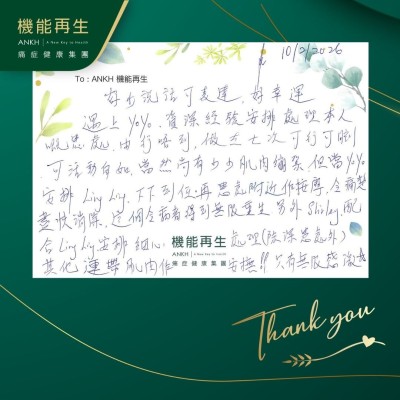 機能再生
ANKH | A New Key to Health
痛症健康集團
10/2/2026
To : ANKH 機能再生
好少說話可表達，好幸運
遇上YoYo，資深經驗安排處理本人
嘅患處，由行唔到，做左七次可行可
可活動自如，當然尚有少少肌肉繃紧，但當YoYo
安排 Ling Ling，下下到位，再患處附近作按摩，令痛楚
盡快消除，這個令病者得到無限重生，另外 Shirley，配
合 Ling Ling 安排細心， 處理（除深患處外）
其他連帶肌肉作 安撫!! 只有無限感激
機能再生
ANKH | A New Key to Health
痛症健康集團
Thank you